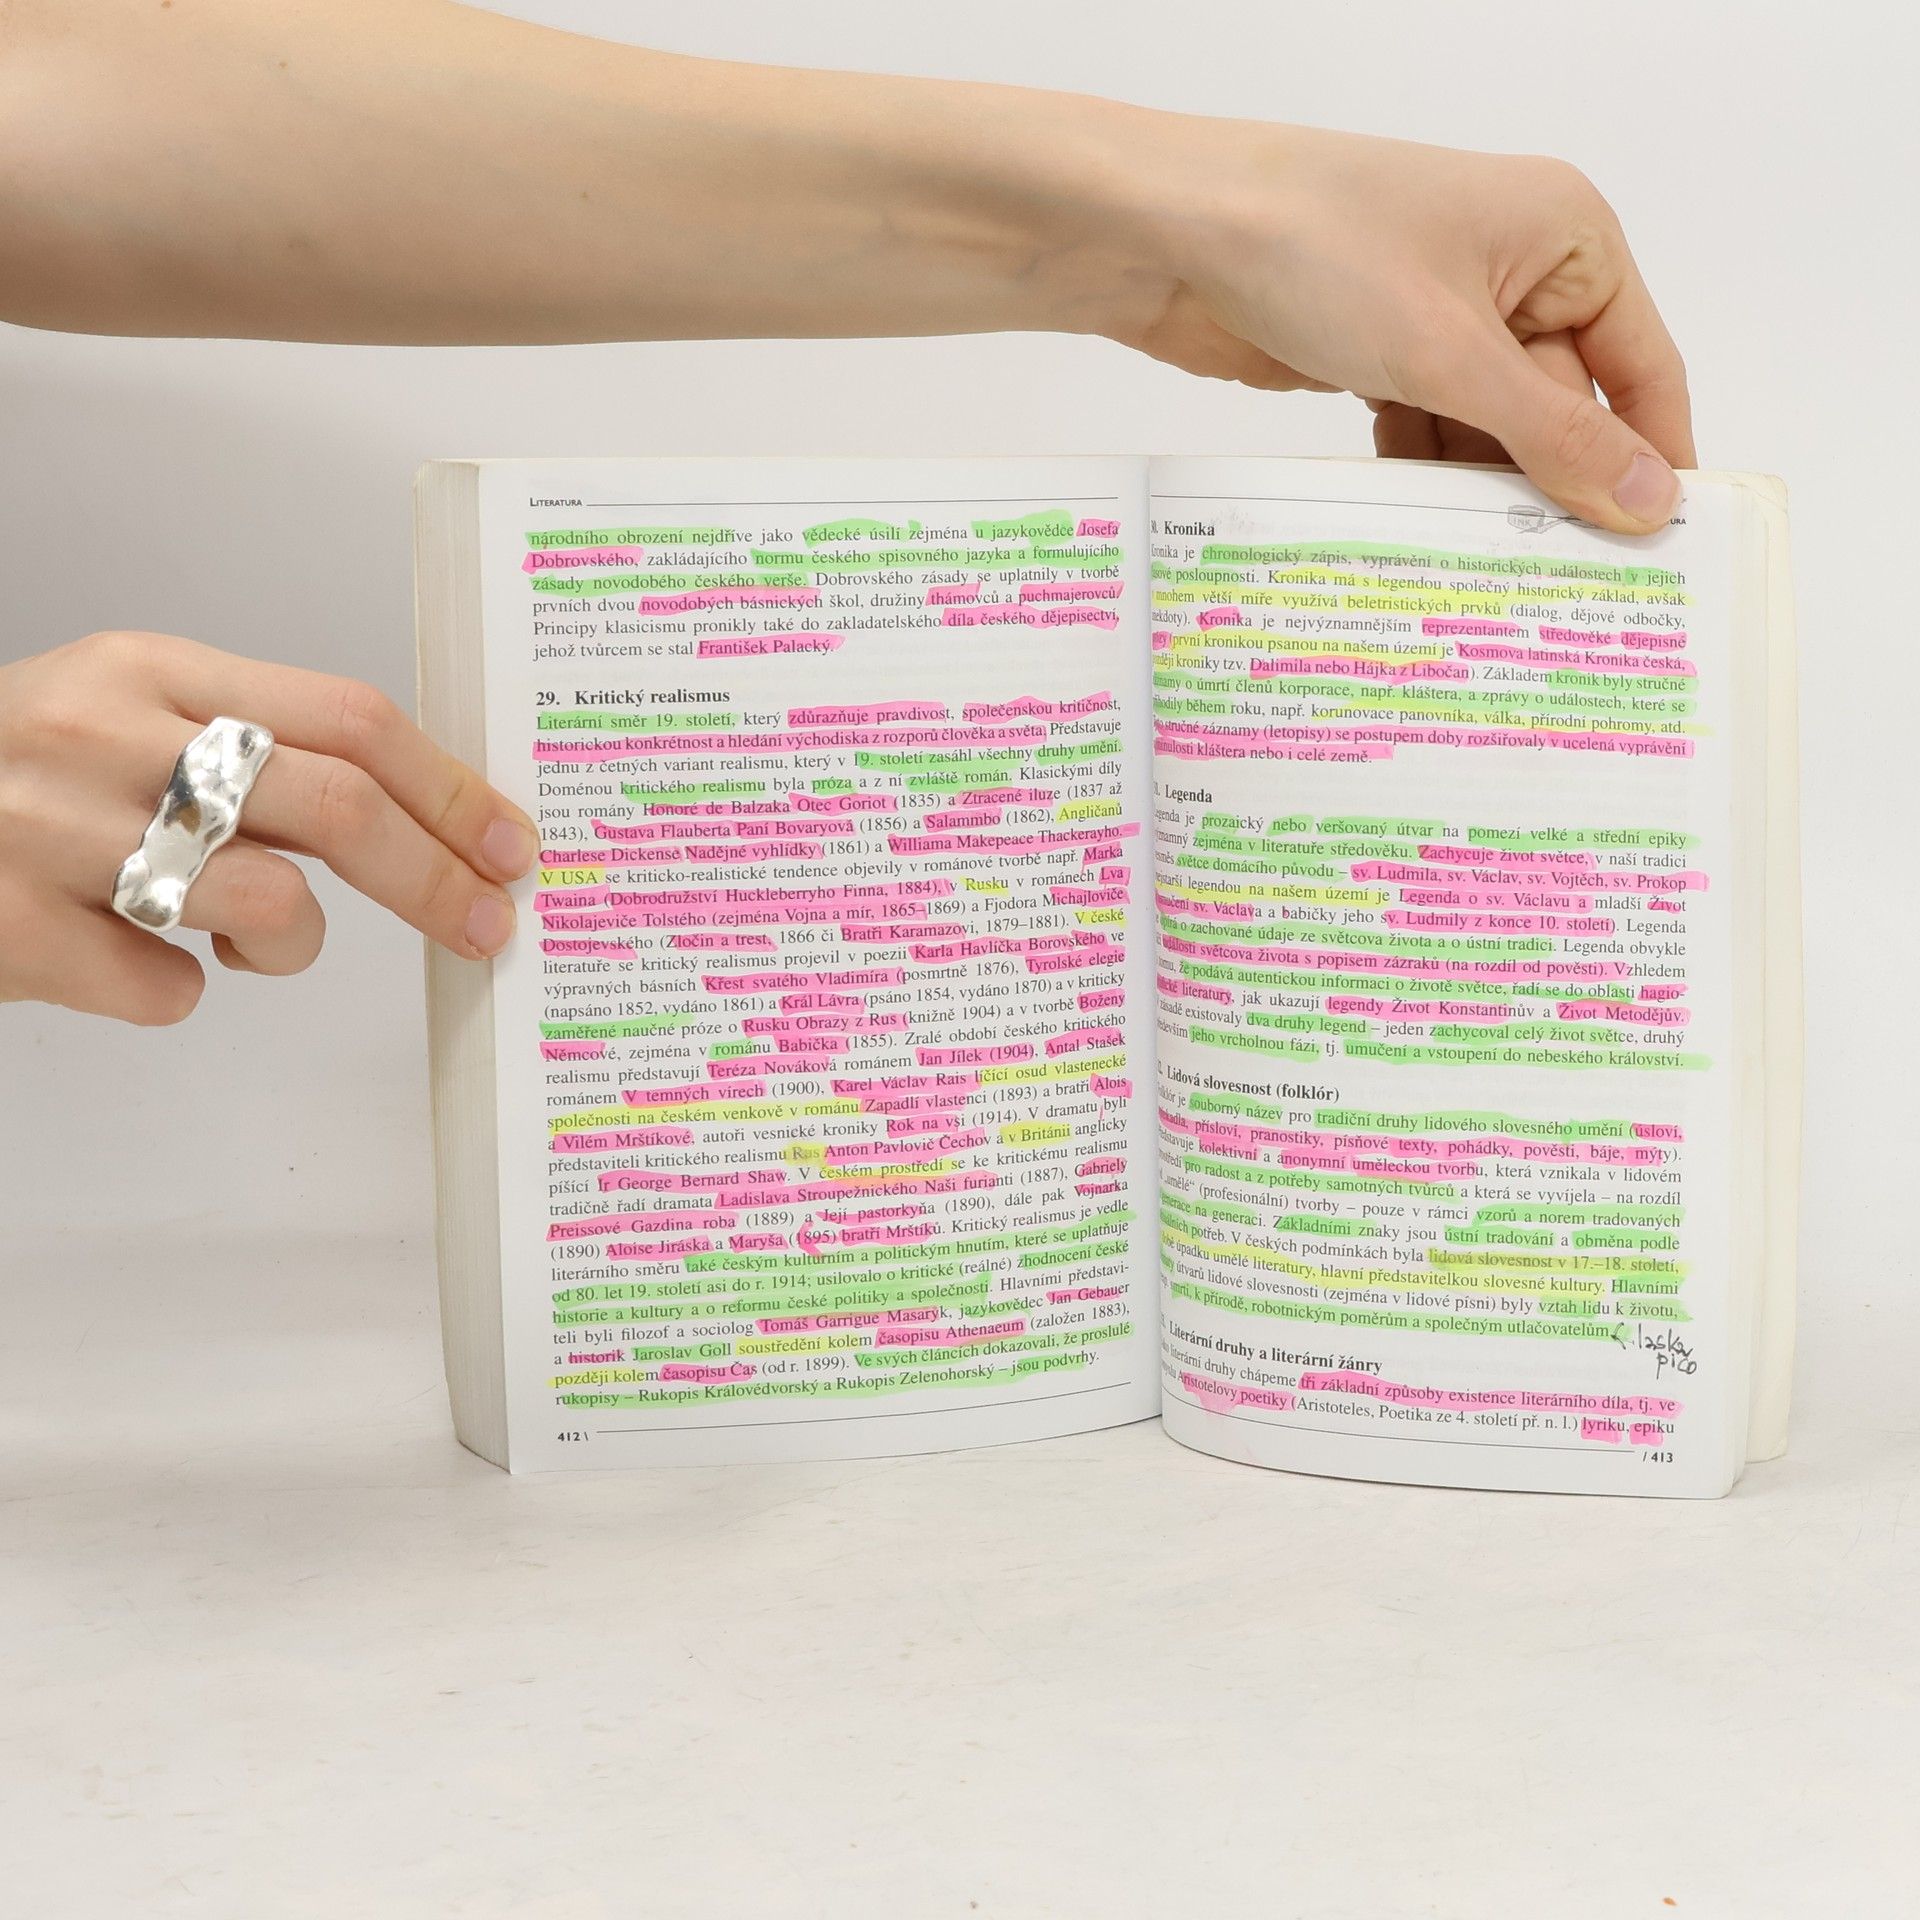 LITERATURA
národního obrození nejdříve jako vědecké úsilí zejména u jazykovědce Josefa
Dobrovského, zakládajícího normu českého spisovného jazyka a formulujícího
zásady novodobého českého verše. Dobrovského zásady se uplatnily v tvorbě
prvních dvou novodobých básnických škol, družiny thámovců a puchmajerovců.
Principy klasicismu pronikly také do zakladatelského díla českého dějepisectví,
jehož tvůrcem se stal František Palacký.
29. Kritický realismus
Literární směr 19. století, který zdůrazňuje pravdivost, společenskou kritičnost,
historickou konkrétnost a hledání východiska z rozporů člověka a světa. Představuje
jednu z četných variant realismu, který v 19. století zasáhl všechny druhy umění.
Doménou kritického realismu byla próza a z ní zvláště román. Klasickými díly
jsou romány Honoré de Balzaka Otec Goriot (1835) a Ztracené iluze (1837 až
1843), Gustava Flauberta Paní Bovaryová (1856) a Salammbo (1862), Angličanů
Charlese Dickense Nadějné vyhlídky (1861) a Williama Makepeace Thackerayho.
V USA se kriticko-realistické tendence objevily v románové tvorbě např. Marka
Twaina (Dobrodružství Huckleberryho Finna, 1884), v Rusku v románech Lva
Nikolajeviče Tolstého (zejména Vojna a mír, 1865–1869) a Fjodora Michajloviče
Dostojevského (Zločin a trest, 1866 či Bratři Karamazovi, 1879–1881). V české
literatuře se kritický realismus projevil v poezii Karla Havlíčka Borovského ve
výpravných básních Křest svatého Vladimíra (posmrtně 1876), Tyrolské elegie
(napsáno 1852, vydáno 1861) a Král Lávra (psáno 1854, vydáno 1870) a v kriticky
zaměřené naučné próze o Rusku Obrazy z Rus (knižně 1904) a v tvorbě Boženy
Němcové, zejména v románu Babička (1855). Zralé období českého kritického
realismu představují Teréza Nováková románem Jan Jílek (1904), Antal Stašek
románem V temných vírech (1900), Karel Václav Rais líčící osud vlastenecké
společnosti na českém venkově v románu Zapadlí vlastenci (1893) a bratři Alois
a Vilém Mrštíkové, autoři vesnické kroniky Rok na vsi (1914). V dramatu byli
představiteli kritického realismu Rus Anton Pavlovič Čechov a v Británii anglicky
píšící Ir George Bernard Shaw. V českém prostředí se ke kritickému realismu
tradičně řadí dramata Ladislava Stroupežnického Naši furianti (1887), Gabriely
Preissové Gazdina roba (1889) a Její pastorkyňa (1890), dále pak Vojnarka
(1890) Aloise Jiráska a Maryša (1895) bratří Mrštíků. Kritický realismus je vedle
literárního směru také českým kulturním a politickým hnutím, které se uplatňuje
od 80. let 19. století asi do r. 1914; usilovalo o kritické (reálné) zhodnocení české
historie a kultury a o reformu české politiky a společnosti. Hlavními představi-
teli byli filozof a sociolog Tomáš Garrigue Masaryk, jazykovědec Jan Gebauer
a historik Jaroslav Goll soustředění kolem časopisu Athenaeum (založen 1883),
později kolem časopisu Čas (od r. 1899). Ve svých článcích dokazovali, že proslulé
rukopisy – Rukopis Královédvorský a Rukopis Zelenohorský – jsou podvrhy.
412 \
INK
URA
Kronika
Kronika je chronologický zápis, vyprávění o historických událostech v jejich
posloupnosti. Kronika má s legendou společný historický základ, avšak
mnohem větší míře využívá beletristických prvků (dialog, dějové odbočky,
Kronika je nejvýznamnějším reprezentantem středověké dějepisné
(první kronikou psanou na našem území je Kosmova latinská Kronika česká,
kroniky tzv. Dalimila nebo Hájka z Libočan). Základem kronik byly stručné
o úmrtí členů korporace, např. kláštera, a zprávy o událostech, které se
během roku, např. korunovace panovníka, válka, přírodní pohromy, atd.
stručné záznamy (letopisy) se postupem doby rozšiřovaly v ucelená vyprávění
minulosti kláštera nebo i celé země.
Legenda
Legenda je prozaický nebo veršovaný útvar na pomezí velké a střední epiky
zejména v literatuře středověku. Zachycuje život světce, v naší tradici
světce domácího původu – sv. Ludmila, sv. Václav, sv. Vojtěch, sv. Prokop
legendou na našem území je Legenda o sv. Václavu a mladší Život
umučení sv. Václava a babičky jeho sv. Ludmily z konce 10. století). Legenda
o zachované údaje ze světcova života a o ústní tradici. Legenda obvykle
události světcova života s popisem zázraků (na rozdíl od pověsti). Vzhledem
tomu, že podává autentickou informaci o životě světce, řadí se do oblasti hagio-
literatury, jak ukazují legendy Život Konstantinův a Život Metodějův.
zásadě existovaly dva druhy legend – jeden zachycoval celý život světce, druhý
především jeho vrcholnou fázi, tj. umučení a vstoupení do nebeského království.
Lidová slovesnost (folklór)
Folklór je souborný název pro tradiční druhy lidového slovesného umění (úsloví,
přísloví, pranostiky, písňové texty, pohádky, pověsti, báje, mýty).
kolektivní a anonymní uměleckou tvorbu, která vznikala v lidovém
pro radost a z potřeby samotných tvůrců a která se vyvíjela – na rozdíl
„umělé“ (profesionální) tvorby – pouze v rámci vzorů a norem tradovaných
generace na generaci. Základními znaky jsou ústní tradování a obměna podle
potřeb. V českých podmínkách byla lidová slovesnost v 17.–18. století,
úpadku umělé literatury, hlavní představitelkou slovesné kultury. Hlavními
útvarů lidové slovesnosti (zejména v lidové písni) byly vztah lidu k životu,
smrti, k přírodě, robotnickým poměrům a společným utlačovatelům
Literární druhy a literární žánry
literární druhy chápeme tři základní způsoby existence literárního díla, tj. ve
Aristotelovy poetiky (Aristoteles, Poetika ze 4. století př. n. l.) lyriku, epiku
/ 413